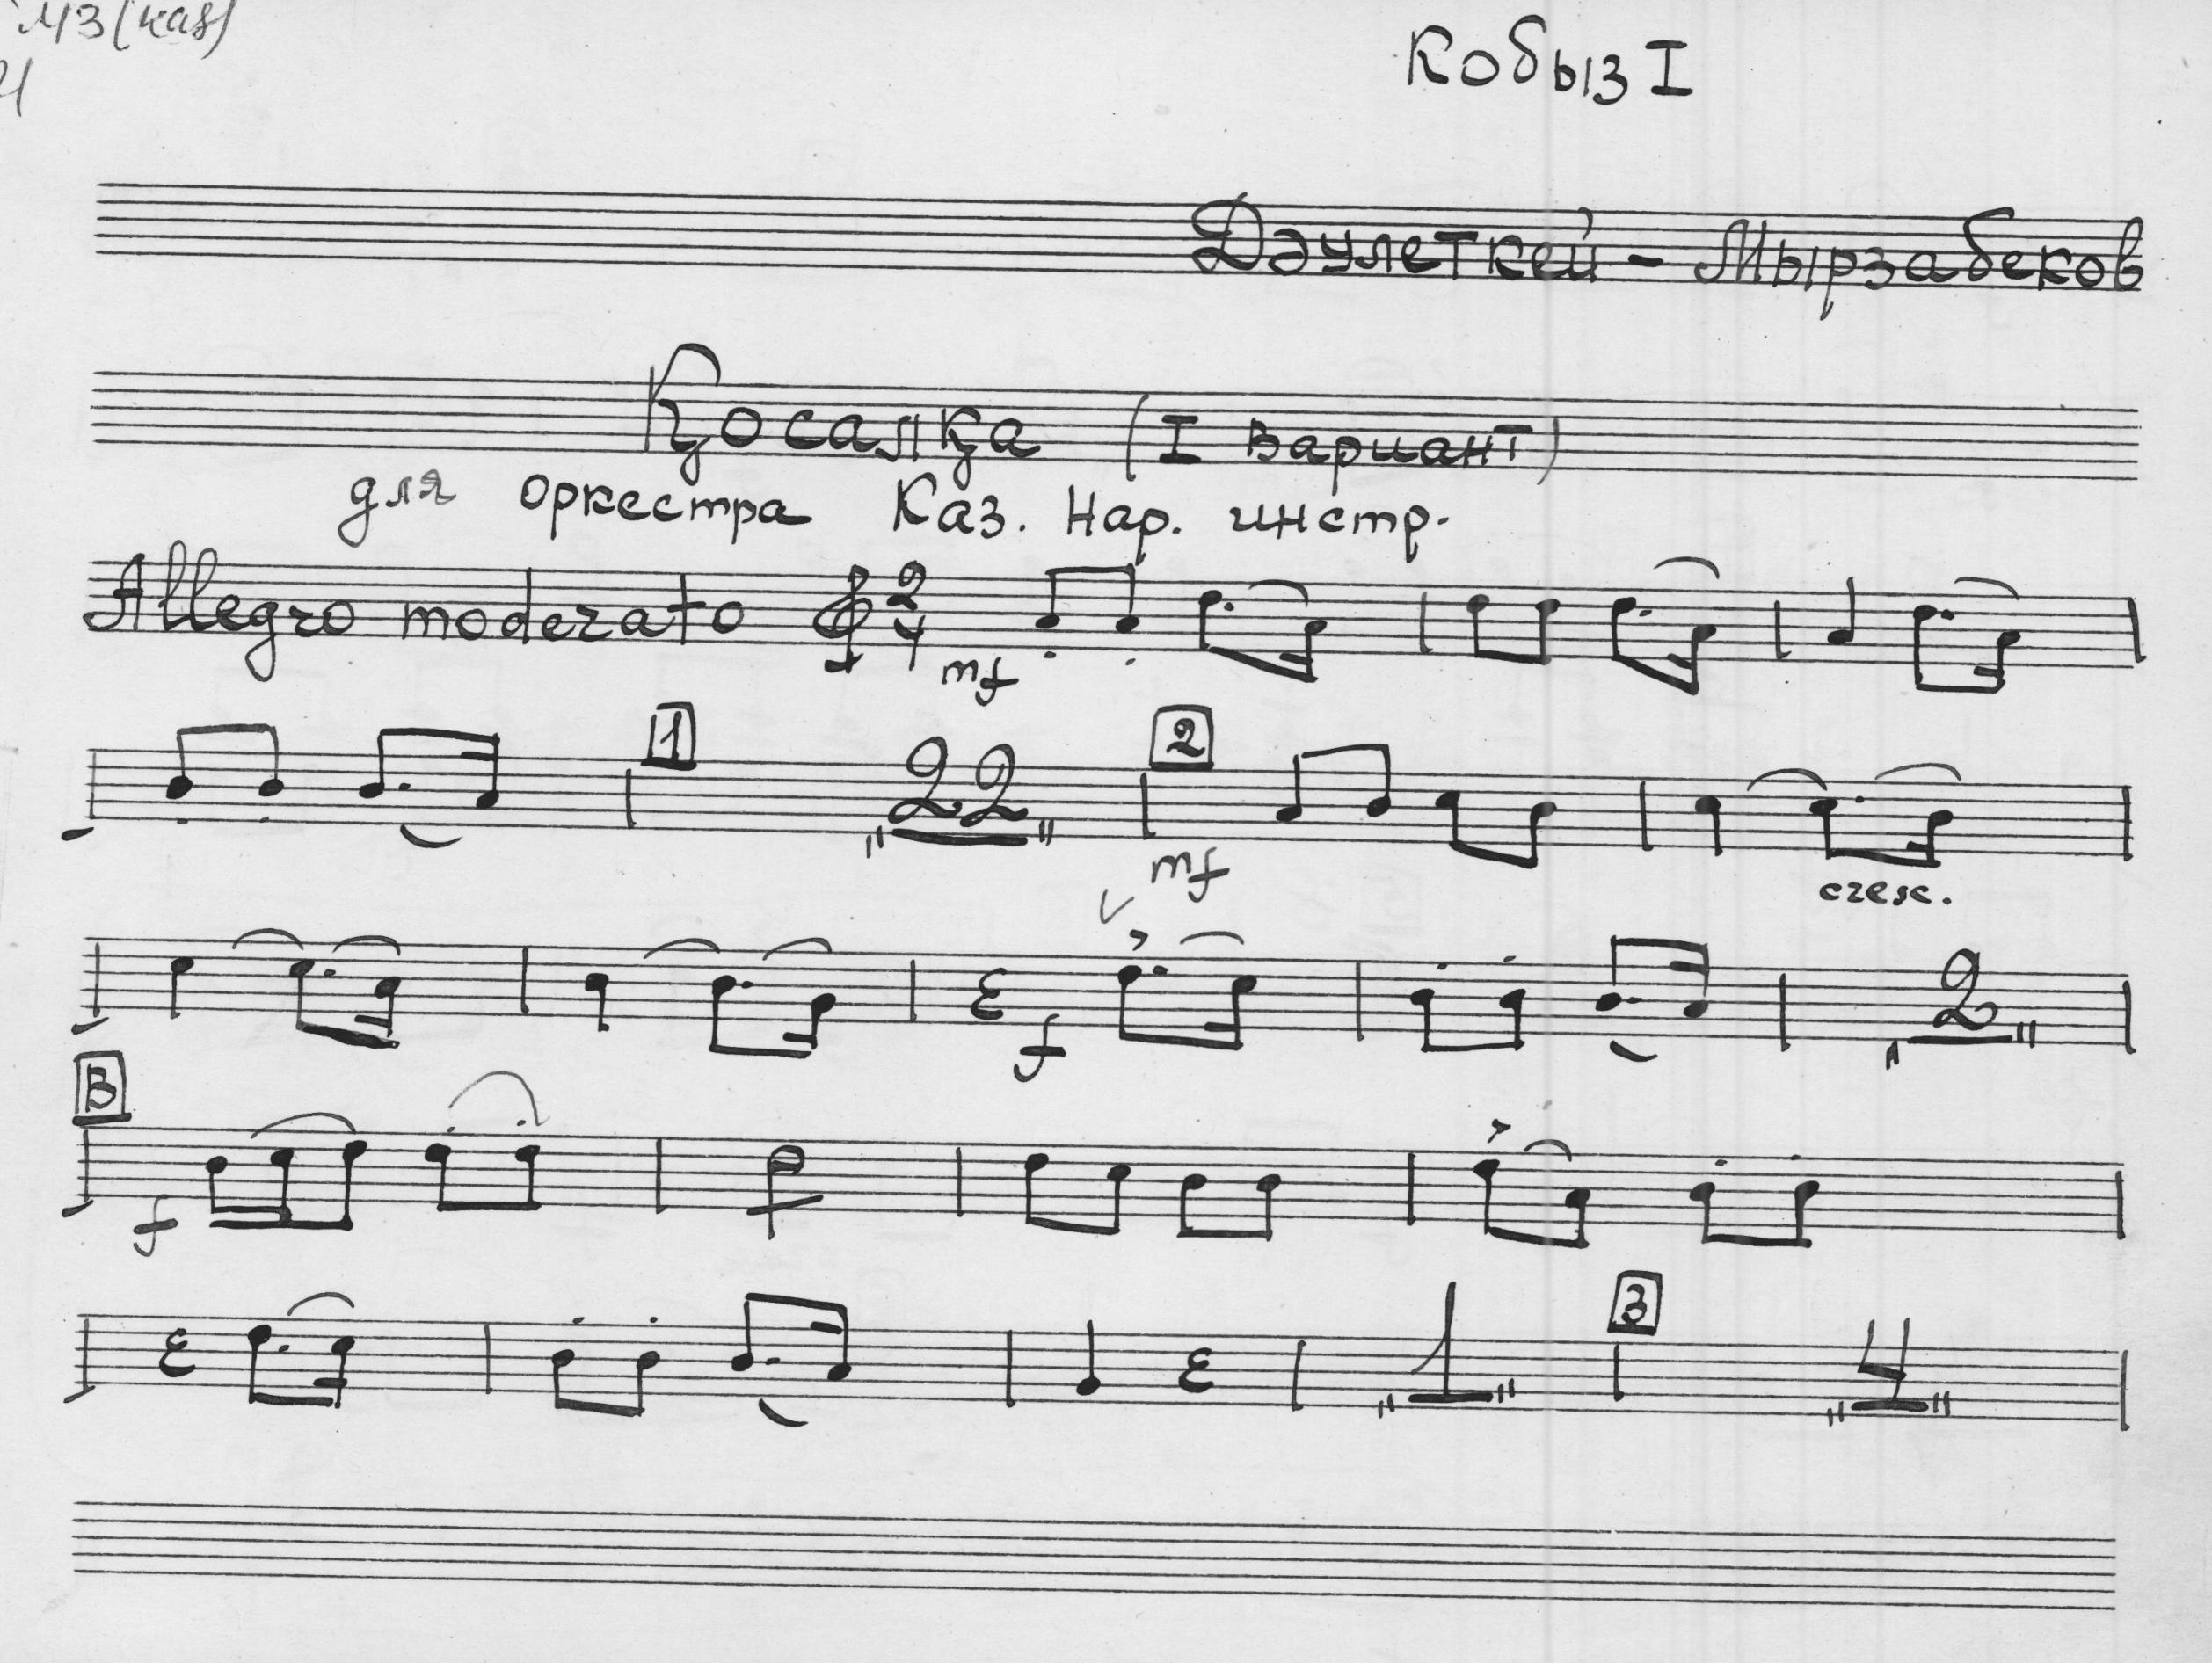 МЗ (каз)
Кобыз I
Дәулеткей - Мырзабеков
Қосалқа (I вариант)
для оркестра Каз. Нар. инстр.
Allegro moderato 2/4
mf
1 22 2
mf cresc.
f 2
В
f
1 3 4